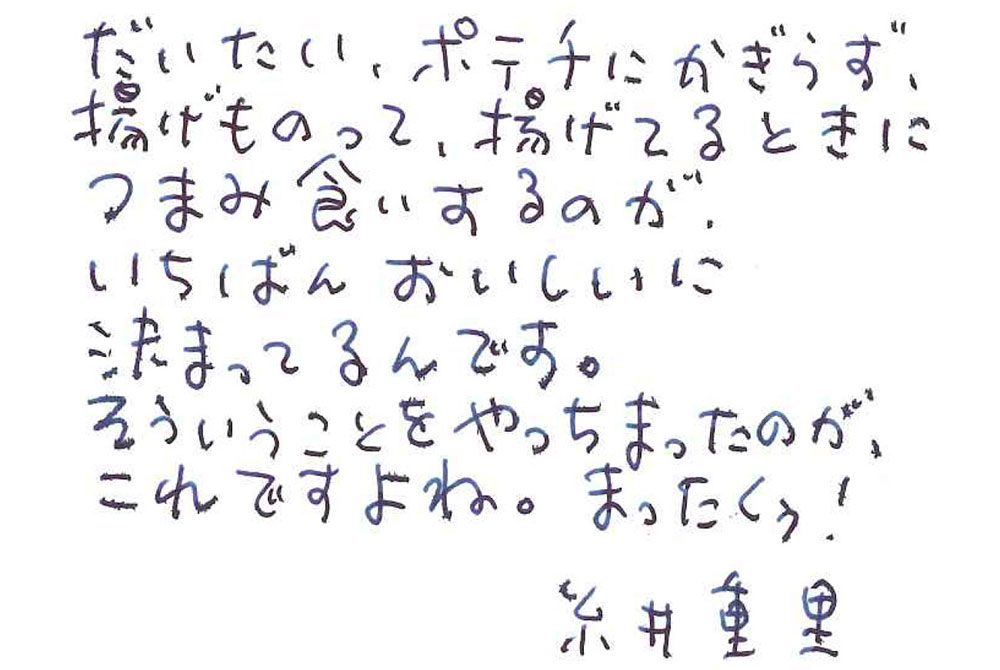 だいたい、ポテチにかぎらず、
揚げものって、揚げてるときに
つまみ食いするのが、
いちばんおいしいに
決まってるんです。
そういうことをやっちまったのが、
これですよね。まったくぅ!
糸井重里